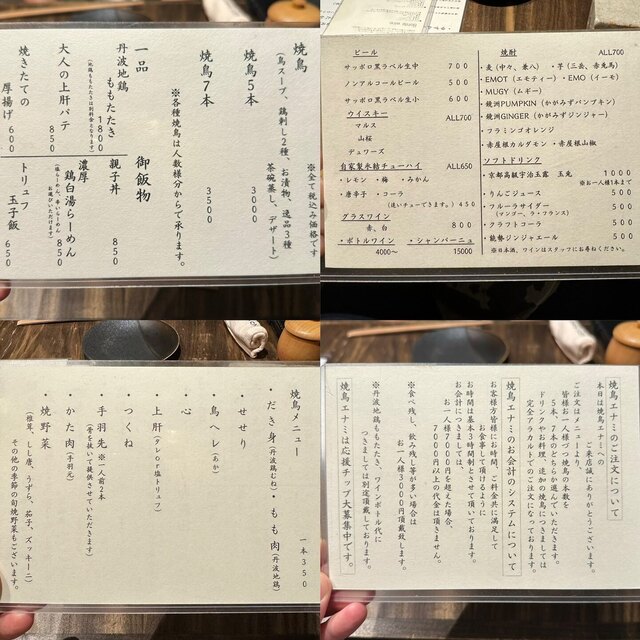 焼鳥
(鳥スープ、鶏刺し2種、お漬物、逸品3種
茶碗蒸し、デザート)
※全て税込み価格です
焼鳥5本 3000
焼鳥7本 3500
※各種焼鳥は人数様分からで承ります。
一品
丹波地鶏 ももたたき 1800
(地鶏ももたたきは別料金となります)
大人の上肝パテ 850
焼きたての
厚揚げ 600
御飯物
親子丼 850
濃厚
鶏白湯らーめん 850
トリュフ
玉子飯 650
ビール
サッポロ黒ラベル生中 700
ノンアルコールビール 500
サッポロ黒ラベル生小 600
ウイスキー ALL700
マルス
山桜
デュワーズ
自家製氷結チューハイ ALL650
・レモン ・梅 ・みかん
・唐辛子 ・コーラ
(追いチューできます。) 450
グラスワイン
赤、白 800
・ボトルワイン ・シャンパーニュ
4000〜 15000
焼酎 ALL700
・麦(中々、兼八) ・芋(三岳、赤兎馬)
・EMOT(エモティー)・EMO(イーモ)
・MUGY(ムギー)
・鏡洲PUMPKIN(かがみずパンプキン)
・鏡洲GINGER(かがみずジンジャー)
・フラミンゴオレンジ
・赤屋根カルダモン ・赤屋根山椒
ソフトドリンク
・京都高級宇治玉露 玉兎 1000
※お一人様1本まで
・りんごジュース 500
・フルーラサイダー 500
(マンゴー、ラ・フランス)
・クラフトコーラ 500
・能勢ジンジャエール 500
※日本酒、ワインはスタッフにお尋ねください。
焼鳥メニュー 一本350
・だき身(丹波鶏むね)・もも肉(丹波地鶏)
・せせり
・鳥ヘレ(あか)
・心
・上肝(タレor塩トリュフ)
・つくね
・手羽先 ※一人前2本
(骨を抜いて提供させていただきます)
・かた肉(手羽元)
・焼野菜
(椎茸、しし唐、うずら、茄子、ズッキーニ)
その他の季節の旬焼野菜もございます。
焼鳥エナミのご注文について
本日は焼鳥エナミへ
ご来店誠にありがとうございます。
ご注文はメニューより、
皆様お一人様づつ焼鳥の本数を
5本、7本のどちらか選んでいただきます。
ドリンクやお料理、追加の焼鳥につきましては
完全アラカルトでのご注文になっております。
焼鳥エナミのお会計のシステムについて
お客様方皆様にお時間、ご料金共に満足して
お食事して頂けるように
お時間は基本3時間制とさせて頂いております。
お会計につきましては、
お一人様7000円を超えた場合、
7000円以上の代金は頂きません。
※食べ残し、飲み残し等が多い場合は
お一人様3000円頂戴致します。
※丹波地鶏ももたたき、ワインボトル代に
つきましては別途頂戴しております。
焼鳥エナミは応援チップ大募集中です。